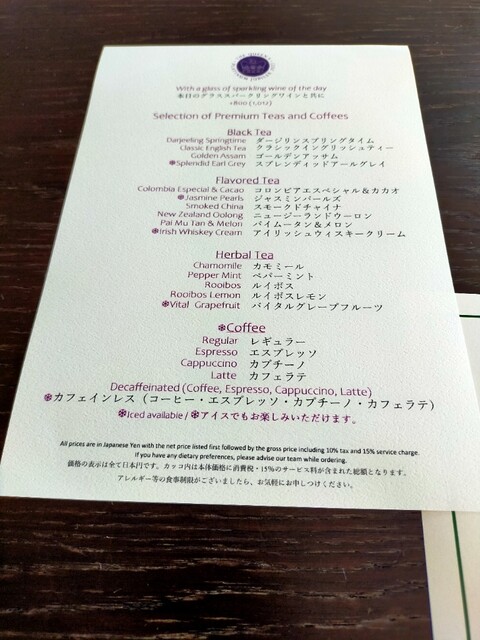 With a glass of sparkling wine of the day
本日のグラススパークリングワインと共に
+800 (1,012)
Selection of Premium Teas and Coffees
Black Tea
Darjeeling Springtime ダージリンスプリングタイム
Classic English Tea クラシックイングリッシュティー
Golden Assam ゴールデンアッサム
❄Splendid Earl Grey スプレンディッドアールグレイ
Flavored Tea
Colombia Especial & Cacao コロンビアエスペシャル＆カカオ
❄Jasmine Pearls ジャスミンパールズ
Smoked China スモークドチャイナ
New Zealand Oolong ニュージーランドウーロン
Pai Mu Tan & Melon パイムータン＆メロン
❄Irish Whiskey Cream アイリッシュウィスキークリーム
Herbal Tea
Chamomile カモミール
Pepper Mint ペパーミント
Rooibos ルイボス
Rooibos Lemon ルイボスレモン
❄Vital Grapefruit バイタルグレープフルーツ
❄Coffee
Regular レギュラー
Espresso エスプレッソ
Cappuccino カプチーノ
Latte カフェラテ
Decaffeinated (Coffee, Espresso, Cappuccino, Latte)
❄カフェインレス（コーヒー・エスプレッソ・カプチーノ・カフェラテ）
❄Iced available / ❄アイスでもお楽しみいただけます。
All prices are in Japanese Yen with the net price listed first followed by the gross price including 10% tax and 15% service charge.
If you have any dietary preferences, please advise our team while ordering.
価格の表示は全て日本円です。カッコ内は本体価格に消費税・15%のサービス料が含まれた総額となります。
アレルギー等の食事制限がございましたら、お気軽にお申しつけください。